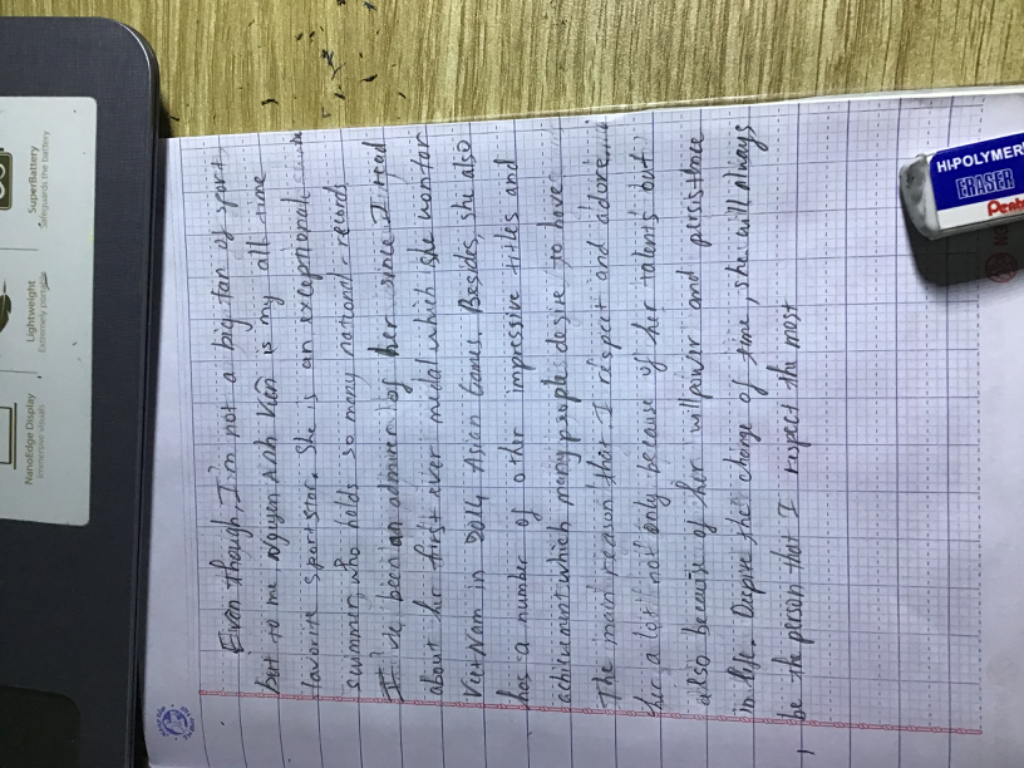 Even though, I'm not a big fan of sport,
but to me Nguyen Anh Vien is my all time
favorite sport star. She is an exceptional
swimmer, who holds so many national records
It've been an admirer of her since I read
about her first ever medal which she won for
VietNam in 2014 Asian Games. Besides, she also
has a number of other impressive titles and
achievement which many people desire to have
The main reason that I respect and adore
her a lot not only because of her talents but
also because of her willpower and persistence
in life. Despive the change of time, she will always
be the person that I respect the most
NanoEdge Display
Immersive visuals
Lightweight
Extremely portable
SuperBattery
Safeguards the battery
HI-POLYMER
ERASER
Pent